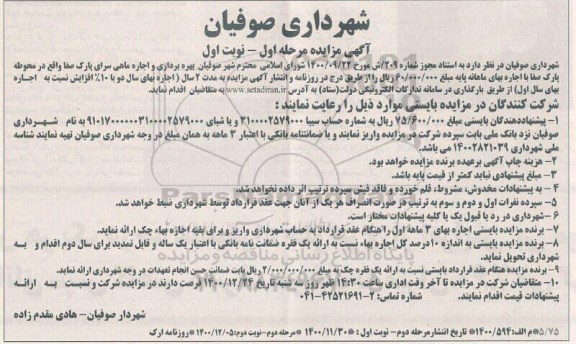 شهرداری صوفیان
آگهی مزایده مرحله اول – نوبت اول
شهرداری صوفیان در نظر دارد به استناد مجوز شماره ۲۰۹/ش مورخ ۱۴۰۰/۰۹/۲۲ شورای اسلامی محترم شهر صوفیان بهره برداری و اجاره ماهی سرای پارک صفا واقع در محوطه
پارک صفا با اجاره بهای ماهانه پایه مبلغ ۶۰/۰۰۰/۰۰۰ ریال را از طریق درج در روزنامه و انتشار آگهی مزایده به مدت ۲ سال ( اجاره بهای سال دو با ۱۰٪ افزایش نسبت به اجاره
بهای سال اول) از طریق بارگذاری در سامانه تدارکات الکترونیکی دولت(ستاد) به آدرس www.setadiran.ir به متقاضیان اقدام نماید.
شرکت کنندگان در مزایده بایستی موارد ذیل را رعایت نمایند :
۱- پیشنهاددهندگان بایستی مبلغ ۷۵/۶۰۰/۰۰۰ ریال به شماره حساب سیبا ۳۱۰۰۰۰۲۵۷۹۰۰۰ و یا شبای به نام شهرداری
صوفیان نزد بانک ملی بابت سپرده شرکت در مزایده واریز نمایند و یا ضمانتنامه بانکی با اعتبار ۳ ماهه به همان مبلغ در وجه شهرداری صوفیان تهیه نمایند شناسه
ملی شهرداری ۱۴۰۰۲۸۲۱۰۳۹ می باشد.
۲- هزینه چاپ آگهی برعهده برنده مزایده خواهد بود.
۳- مبلغ پیشنهادی نباید کمتر از قیمت پایه باشد.
۴- به پیشنهادات مخدوش، مشروط، قلم خورده و فاقد فیش سپرده ترتیب اثر داده نخواهد شد.
۵- سپرده نفرات اول و دوم و سوم به ترتیب در صورت انصراف هر یک از آنان جهت عقد قرارداد توسط شهرداری ضبط خواهد شد.
۶- شهرداری در رد یا قبول یک یا کلیه پیشنهادات مختار است.
۷- برنده مزایده بایستی اجاره بهای ۳ ماهه اول را هنگام عقد قرارداد به حساب شهرداری واریز و برای بقیه اجاره بهاء چک ارائه نماید.
۸- برنده مزایده بایستی به اندازه ۱۰درصد کل اجاره بهاء نسبت به ارائه یک فقره ضمانت نامه بانکی با اعتبار یک ساله و قابل تمدید برای سال دوم اقدام و به
شهرداری تحویل نماید.
۹- برنده مزایده هنگام عقد قرارداد بایستی نسبت به ارائه یک فقره چک به مبلغ ۲/۰۰۰/۰۰۰/۰۰۰ ریال بابت ضمانت حسن انجام تعهدات در وجه شهرداری ارائه نماید.
۱۰- متقاضیان شرکت در مزایده تا آخر وقت اداری ساعت ۱۴:۳۰ ظهر روز سه شنبه تاریخ ۱۴۰۰/۱۲/۲۴ فرصت دارند در مزایده شرکت و نسبت به ارائه
پیشنهادات قیمت اقدام نمایند. شماره تماس: ۲-۴۲۵۲۱۶۹۱-۰۴۱
شهردار صوفیان- هادی مقدم زاده
۵/۷۵ *م الف:۱۴۰۰/۵۹۴* تاریخ انتشارمرحله دوم- نوبت اول : ۱۴۰۰/۱۱/۳۰ *مرحله دوم-نوبت دوم:۱۴۰۰/۱۲/۰۵ *روزنامه ارک
پایگاه اطلاع رسانی مناقصه و مزایده